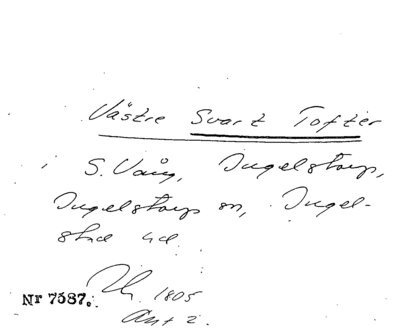 Västre Svart Tofter
i S. Vång, Ingelstorp,
Ingelstorps sn, Ingel-
stad hd.
1805
Nr 7587.
Akt 2.